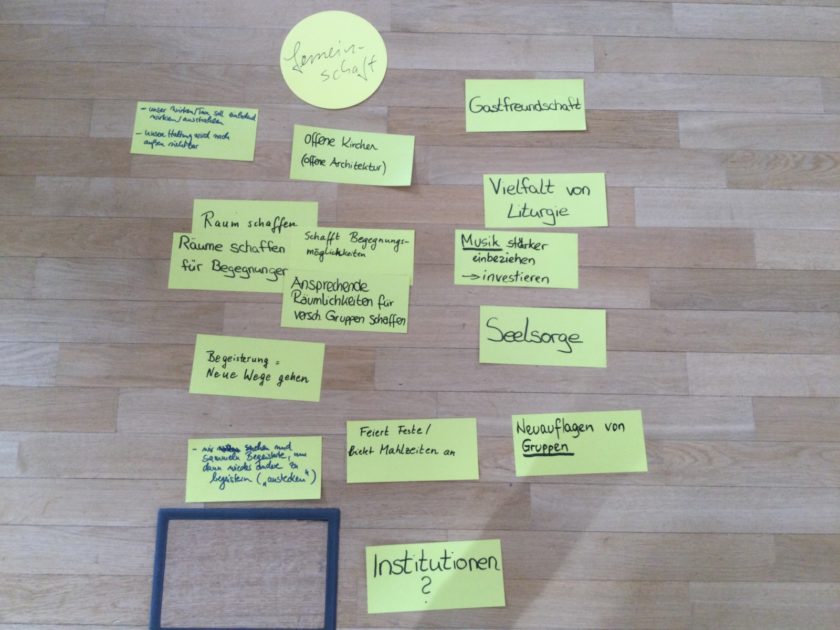 Gemein-
schaft
Gastfreundschaft
- unser Wirken/Tun soll einladend
wirken/ausstrahlen
- Unsere Haltung wird nach
außen sichtbar
Offene Kirchen
(offene Architektur)
Vielfalt von
Liturgie
Raum schaffen
Räume schaffen
für Begegnungen
Schafft Begegnungs-
möglichkeiten
Musik stärker
einbeziehen
→ investieren
Ansprechende
Räumlichkeiten für
versch Gruppen schaffen
Seelsorge
Begeisterung =
Neue Wege gehen
Feiert Feste/
Bietet Mahlzeiten an
Neuauflagen von
Gruppen
- wir suchen und
sammeln Begeisterte, um
dann wieder andere zu
begeistern („anstecken“)
Institutionen
?